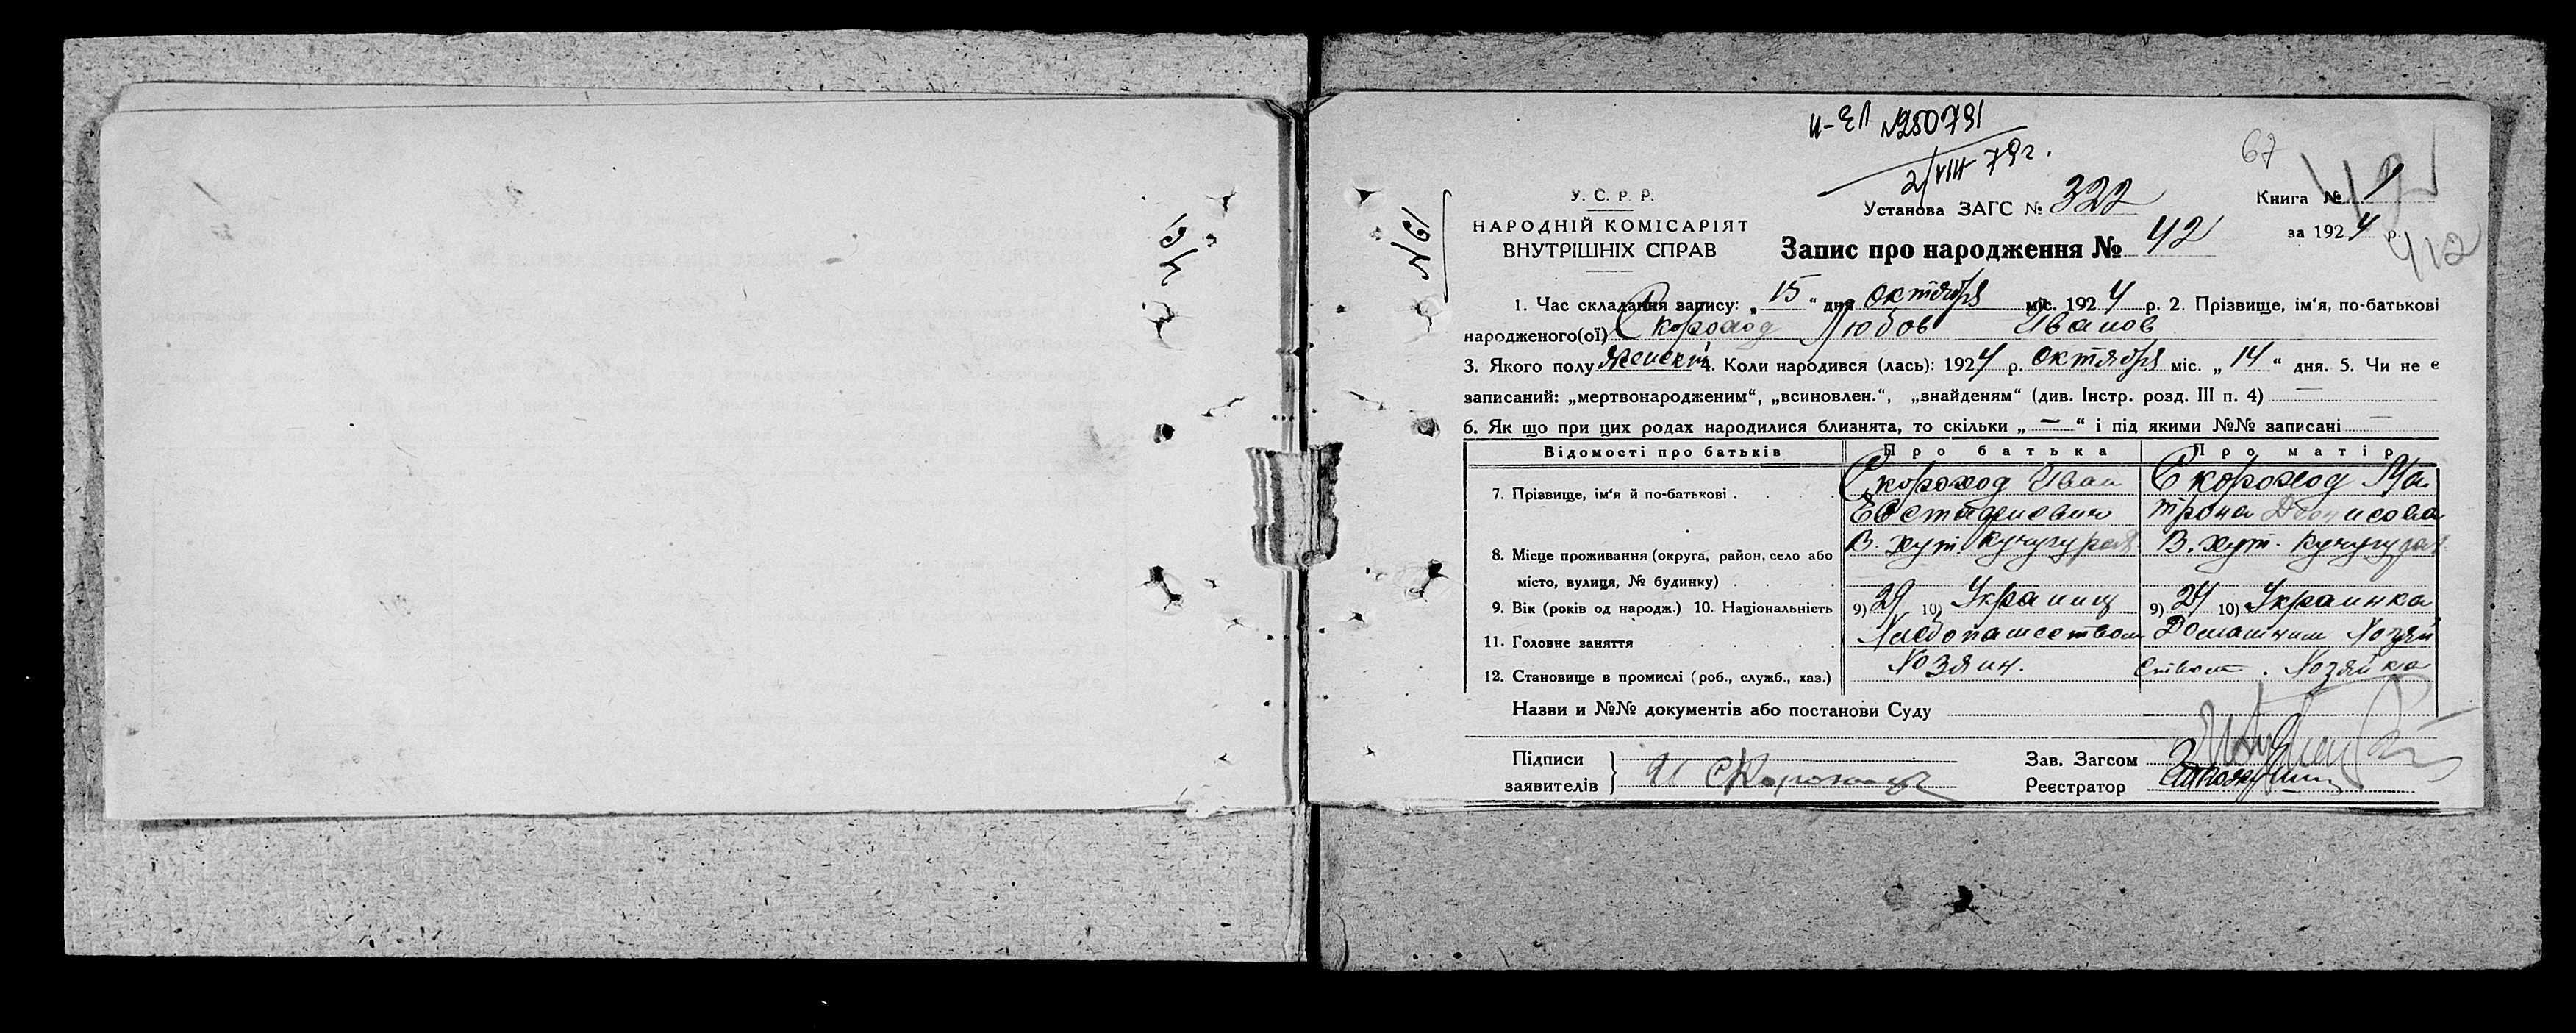 И-ЕЛ №250791
2/VIII 79г.
67
У. С. Р. Р.
НАРОДНІЙ КОМІСАРІЯТ
ВНУТРІШНІХ СПРАВ
Установа ЗАГС № 322
Книга № 1
за 1924 р.
42
412
№61
Запис про народження № 42
1. Час складання запису: „ 15 “ дня Октября міс. 1924 р. 2. Прізвище, ім‘я, по-батькові
народженого(ої) Скороход Любов Иванов
3. Якого полу Женский 4. Коли народився (лась): 1924 р. Октября міс. „ 14 “ дня. 5. Чи не є
записаний: „мертвонародженим“, „всиновлен.“, „знайденям“ (див. Інстр. розд. III п. 4) —
6. Як що при цих родах народилися близнята, то скільки „ — “ і під якими №№ записані —
Відомості про батьків Про батька Про матір
7. Прізвище, ім‘я й по-батькові . Скороход Иван Скороход Ма
Евстафиевич трона Денисова
8. Місце проживання (округа, район, село або В. хут. Кучугурах В. хут. Кучугурах
місто, вулиця, № будинку)
9. Вік (років од народж.) 10. Національність 9) 29 10) Украинец 9) 24 10) Украинка
11. Головне заняття Хлебопашеством Домашним Хозяй
12. Становище в промислі (роб., служб., хаз.) Хозяин. ством. Хозяйка
Назви и №№ документів або постанови Суду
Підписи
заявителів И Скороход
Зав. Загсом
Реєстратор